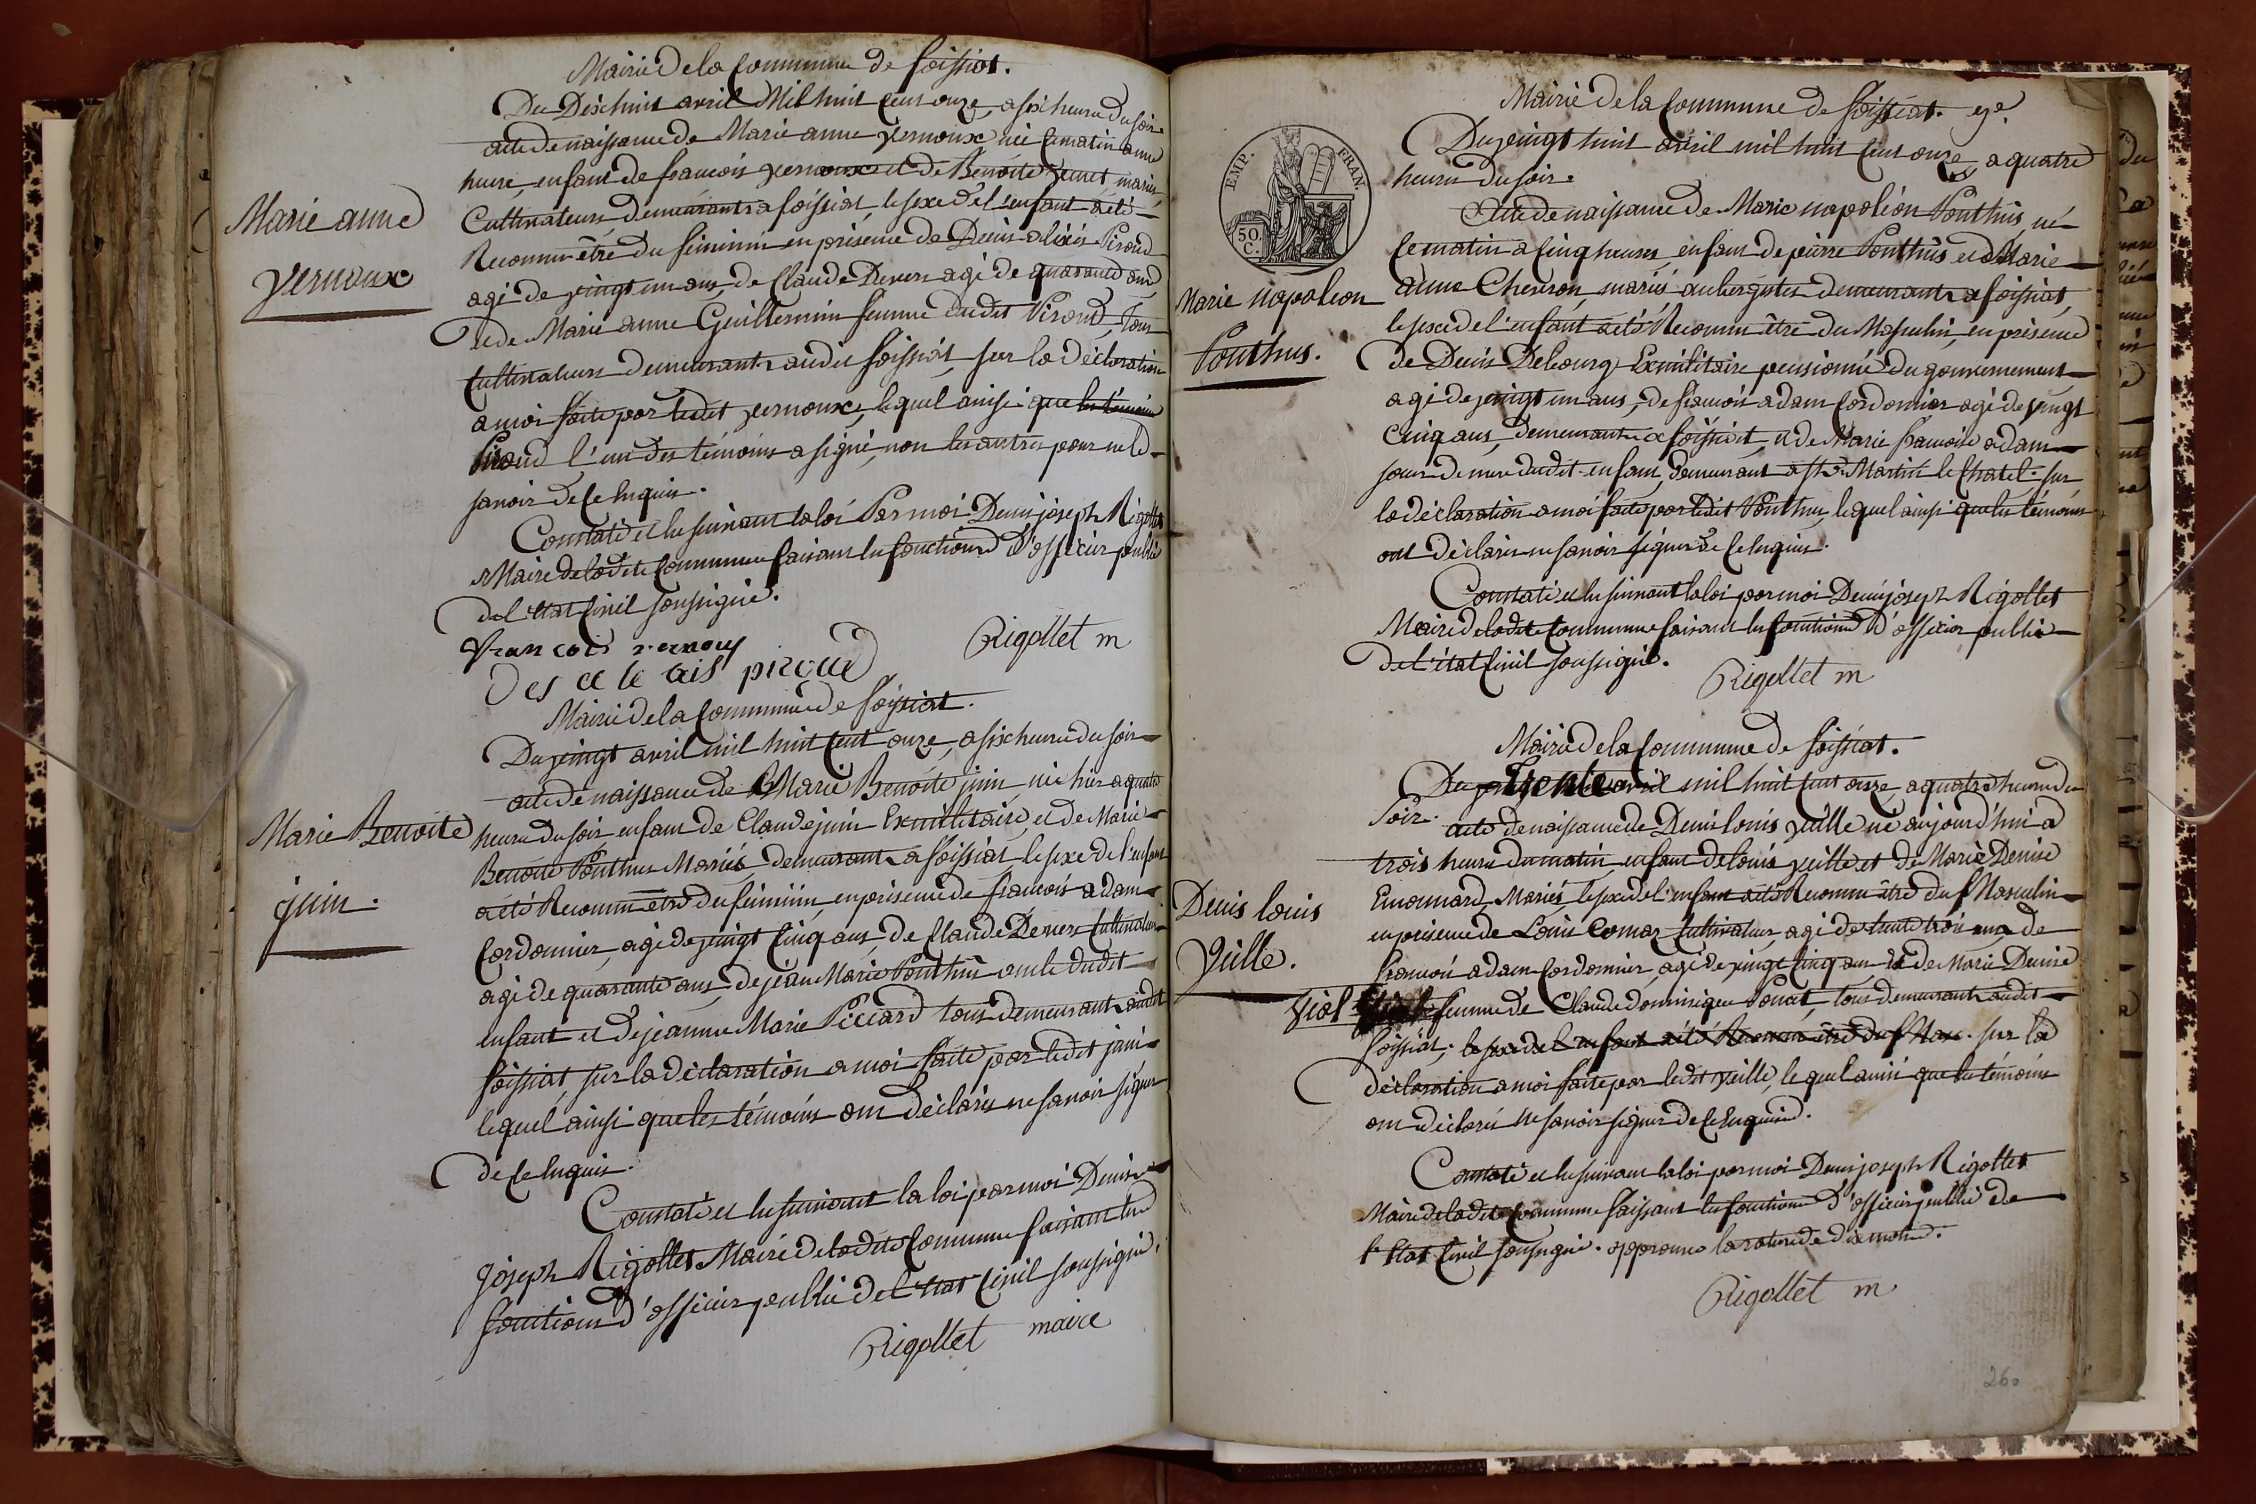 Mairie De la Commune de foissiat.
Du Dix huit avril Mil huit Cent onze, a six heures du soir
acte de naissance de Marie anne Vernoux née ce matin a une
heure, enfant de francois Vernoux et de Benoite mariés
Cultivateurs demeurants a foissiat, le sexe de l'enfant a été
Reconnu être du féminin en présence de Denis alexis Piroud
agé de vingt un ans, de Claude Devers agé de quarante ans
et de Marie anne Guillermin femme dudit Piroud, Tous
Cultivateurs demeurants audit foissiat, sur la Déclaration
a moi faite par ledit Vernoux, lequel ainsi que les témoins
Piroud l'un des témoins a signé, non les autres pour ne le
savoir De Ce Enquis.
Constaté et lu suivant la loi Par moi Denis joseph Rigollet
Maire de ladite Commune faisant les fonctions D'officier public
de l'état Civil soussigné.
Rigollet m
francois vernous
piroud
Marie anne
Vernoux
Mairie De la Commune de foissiat.
Du vingt avril mil huit Cent onze, a six heures du soir
acte de naissance de Marie Benoite juin, née hier a quatre
heures du soir enfant de Claude juin Exmilitaire, et de Marie
Benoite Ponthus Mariés, demeurants a foissiat le sexe de l'enfant
a été Reconnu être du féminin, en présence de francois adam
Cordonnier, agé de vingt Cinq ans, de Claude Devers Cultivateur
agé de quarante ans, de jean Marie Ponthus oncle dudit
enfant et de jeanne Marie Piccard tous demeurant audit
foissiat, sur la déclaration a moi faite par ledit juin
lequel ainsi que les témoins ont déclarés ne savoir signer
de Ce Enquis.
Constaté et lu suivant la loi par moi Denis
joseph Rigollet Maire de ladite Commune faisant les
fonctions D'officier public de l'état Civil soussigné.
Rigollet maire
Marie Benoite
juin.
Mairie De la Commune de foissiat.
Du vingt huit avril mil huit Cent onze, a quatre
heures du soir.
Acte de naissance de Marie napoléon Ponthus, né
Ce matin a Cinq heures, enfant de pierre Ponthus et de Marie
anne Chevron, mariés aubergistes demeurants a foissiat,
le sexe de l'enfant a été Reconnu être du Masculin, en présence
de Denis Debourg Exmilitaire pensionné du gouvernement
agé de vingt un ans, de francois adam Cordonnier agé de vingt
Cinq ans, demeurants a foissiat, et de Marie francoise adam
soeur de mere dudit enfant, demeurant a St. Martin le Chatel. sur
la déclaration a moi faite par ledit Ponthus, lequel ainsi que les témoins
ont déclarés ne savoir signer de Ce Enquis.
Constaté et lu suivant la loi par moi Denis joseph Rigollet
Maire de ladite Commune faisant les fonctions D'officier public
de l'état Civil soussigné.
Rigollet m
EMP.
FRAN.
50.
C.
Marie napoleon
Ponthus.
Mairie de la Commune de foissiat.
Du trente avril mil huit Cent onze, a quatre heures du
soir. acte de naissance de Denis louis Veille né aujourd'hui a
trois heures du matin, enfant de louis Veille et de Marie Denise
Emonnard, Mariés, le sexe de l'enfant a été Reconnu être du Masculin
en présence de Louis Comas Cultivateur, agé de trente trois ans, de
francois adam Cordonnier, agé de vingt Cinq ans et de Marie Denise
Viol femme de Claude dominique Ponat, tous demeurants audit
foissiat, le sexe de l'enfant a été Reconnu être du Masc. sur la
déclaration a moi faite par ledit Veille, lequel ainsi que les témoins
ont déclarés ne savoir signer de Ce Enquis.
Constaté et lu suivant la loi par moi Denis joseph Rigollet
Maire de ladite Commune faisant les fonctions D'officier public de
l'état Civil soussigné. approuve la rature de dix mots.
Rigollet m
Denis louis
Veille.
26.